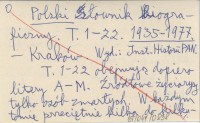 Polski Słownik Biogra-
ficzny. T. 1-22. 1935-1977.
– Kraków Wyd: Inst. Historii PAN.
T. 1-22 obejmują dopiero
litery A-M. Źródłowe życiorysy
tylko osób zmarłych. W każdym
tomie przeciętnie